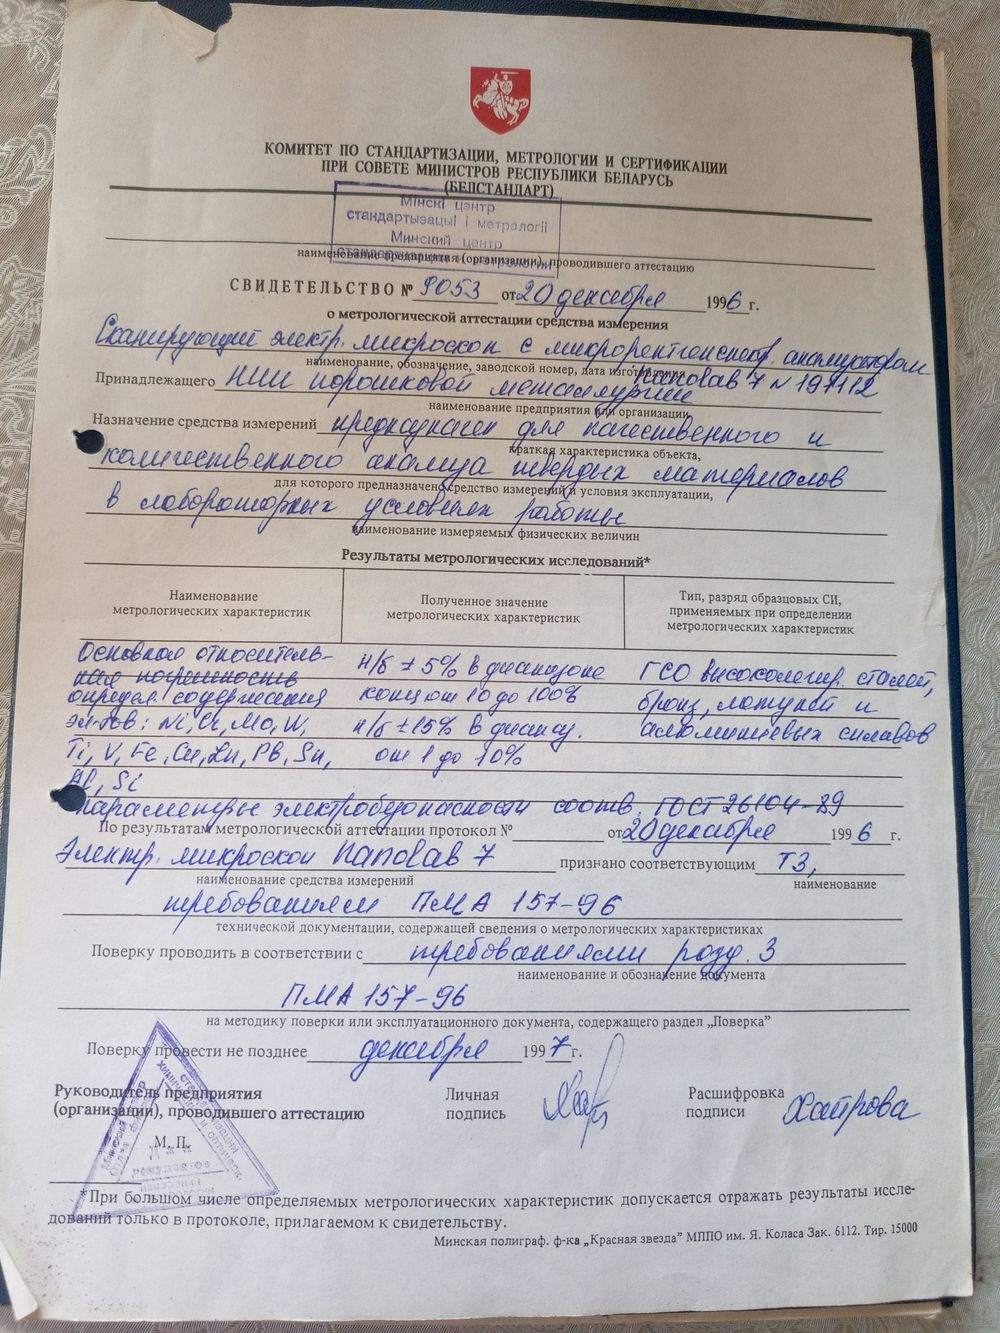 КОМИТЕТ ПО СТАНДАРТИЗАЦИИ, МЕТРОЛОГИИ И СЕРТИФИКАЦИИ
ПРИ СОВЕТЕ МИНИСТРОВ РЕСПУБЛИКИ БЕЛАРУСЬ
(БЕЛСТАНДАРТ)
Мінскі цэнтр
стандартызацыі і метралогіі
Минский центр
стандартизации и метрологии
наименование предприятия (организации), проводившего аттестацию
СВИДЕТЕЛЬСТВО № 9053 от 20 декабря 1996 г.
о метрологической аттестации средства измерения
Сканирующий электр. микроскоп с микрорентгеноспектр. анализатором
наименование, обозначение, заводской номер, дата изготовления
Nanolab 7 N 197112
Принадлежащего НИИ порошковой металлургии
наименование предприятия или организации
Назначение средства измерений предназначен для качественного и
краткая характеристика объекта,
количественного анализа твердых материалов
для которого предназначено средство измерений и условия эксплуатации,
в лабораторных условиях работы
наименование измеряемых физических величин
Результаты метрологических исследований*
Наименование метрологических характеристик
Полученное значение метрологических характеристик
Тип, разряд образцовых СИ, применяемых при определении метрологических характеристик
Основная относитель- н/б ± 5% в диапазоне ГСО высоколегир. сталей,
ная погрешность
определ. содержания конц от 10 до 100% бронз, латуней и
эл-тов: Ni, Cr, Mo, W, н/б ±15% в диапаз. алюминиевых сплавов
Ti, V, Fe, Cu, Zn, Pb, Sn, от 1 до 10%
Al, Si
Параметры электробезопасности соотв. ГОСТ 26104-89
По результатам метрологической аттестации протокол № от 20 декабря 1996 г.
Электр. микроскоп Nanolab 7 признано соответствующим ТЗ,
наименование средства измерений наименование
требованиям ПМА 157-96
технической документации, содержащей сведения о метрологических характеристиках
Поверку проводить в соответствии с требованиями разд. 3
наименование и обозначение документа
ПМА 157-96
на методику поверки или эксплуатационного документа, содержащего раздел „Поверка”
Поверку провести не позднее декабря 1997 г.
Руководитель предприятия
(организации), проводившего аттестацию
Личная
подпись
Расшифровка
подписи
Хаирова
М. П.
Для
документов
При большом числе определяемых метрологических характеристик допускается отражать результаты иссле-
дований только в протоколе, прилагаемом к свидетельству.
Минская полиграф. ф-ка „Красная звезда” МППО им. Я. Коласа Зак. 6112. Тир. 15000